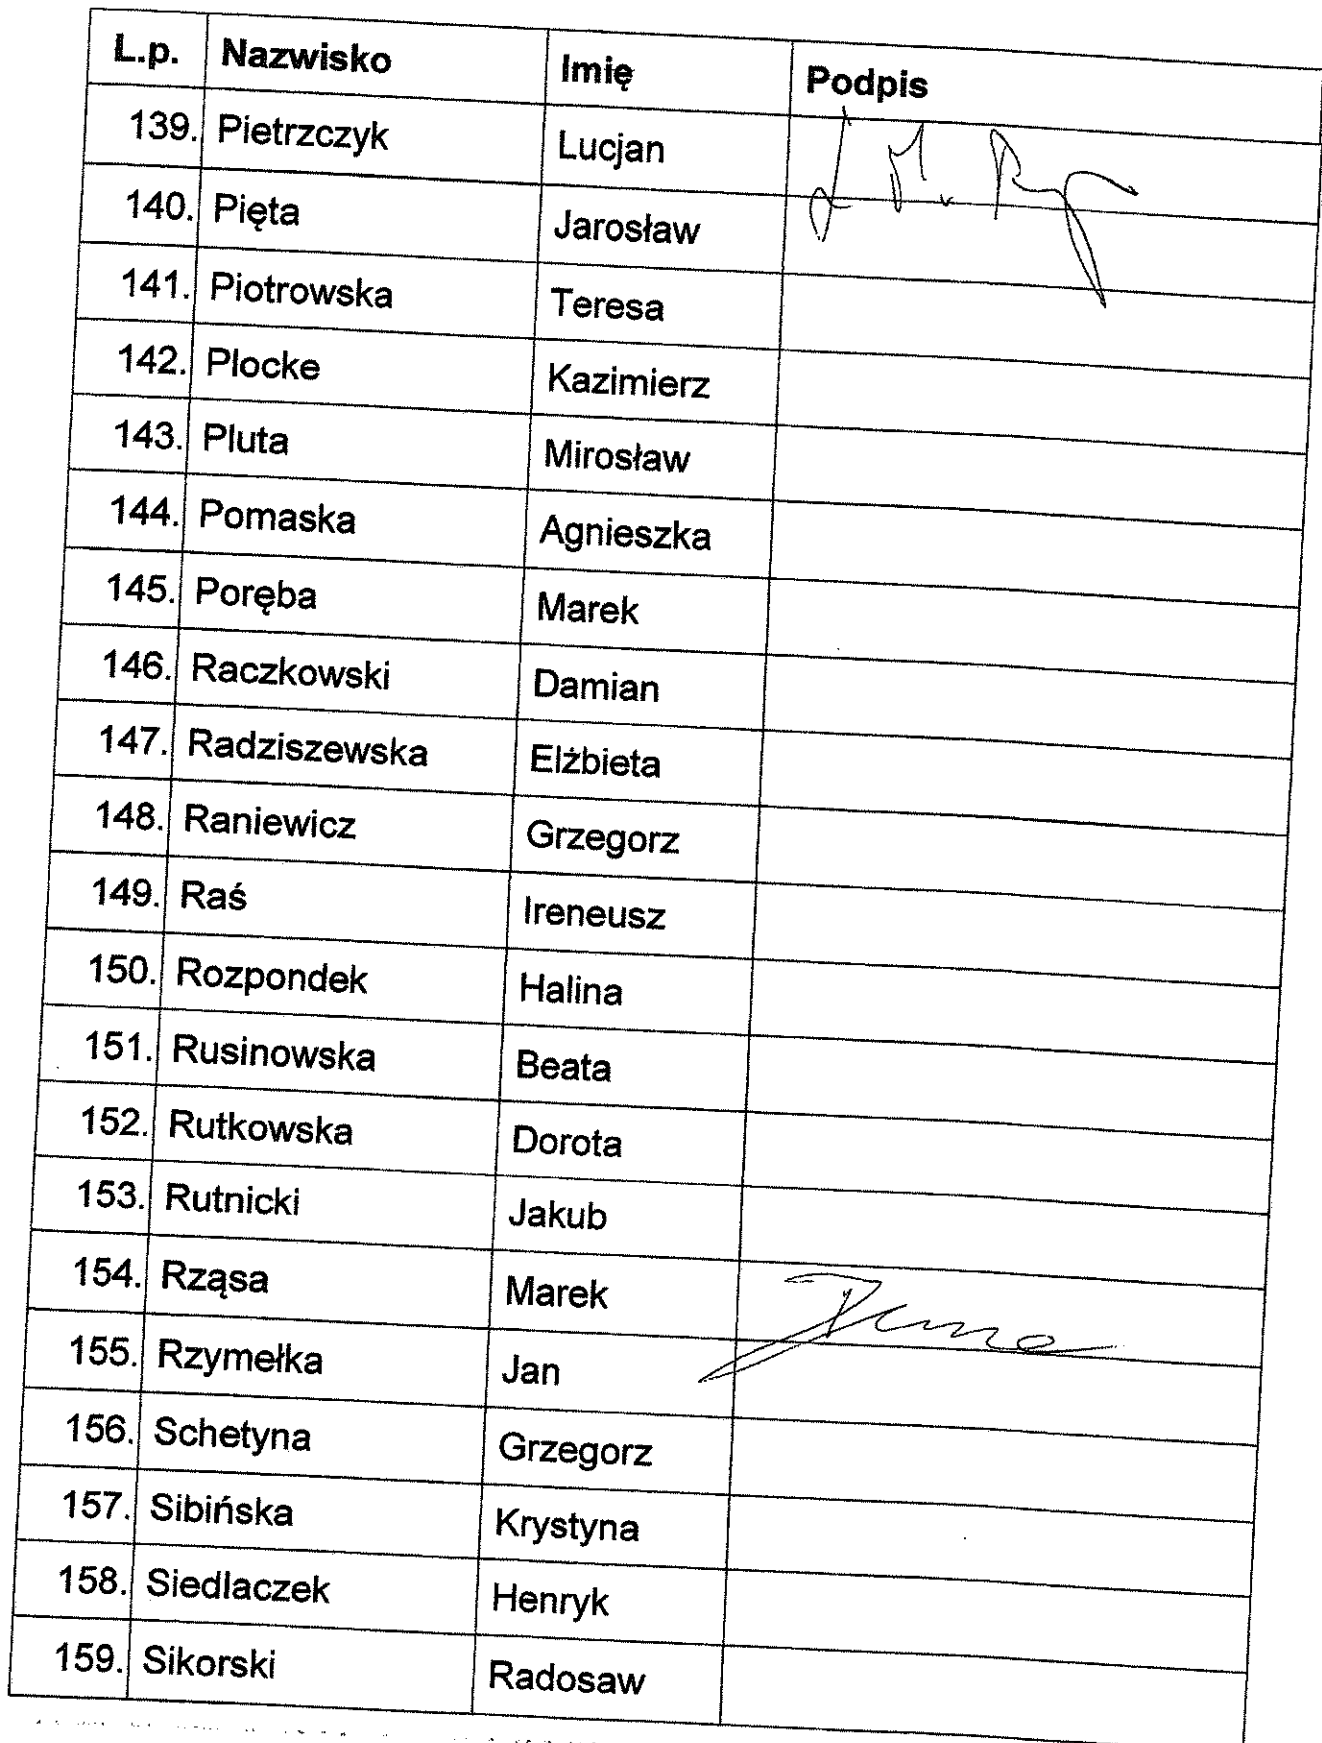 L.p. Nazwisko Imię Podpis
139. Pietrzczyk Lucjan
140. Pięta Jarosław
141. Piotrowska Teresa
142. Plocke Kazimierz
143. Pluta Mirosław
144. Pomaska Agnieszka
145. Poręba Marek
146. Raczkowski Damian
147. Radziszewska Elżbieta
148. Raniewicz Grzegorz
149. Raś Ireneusz
150. Rozpondek Halina
151. Rusinowska Beata
152. Rutkowska Dorota
153. Rutnicki Jakub
154. Rząsa Marek
155. Rzymełka Jan
156. Schetyna Grzegorz
157. Sibińska Krystyna
158. Siedlaczek Henryk
159. Sikorski Radosaw